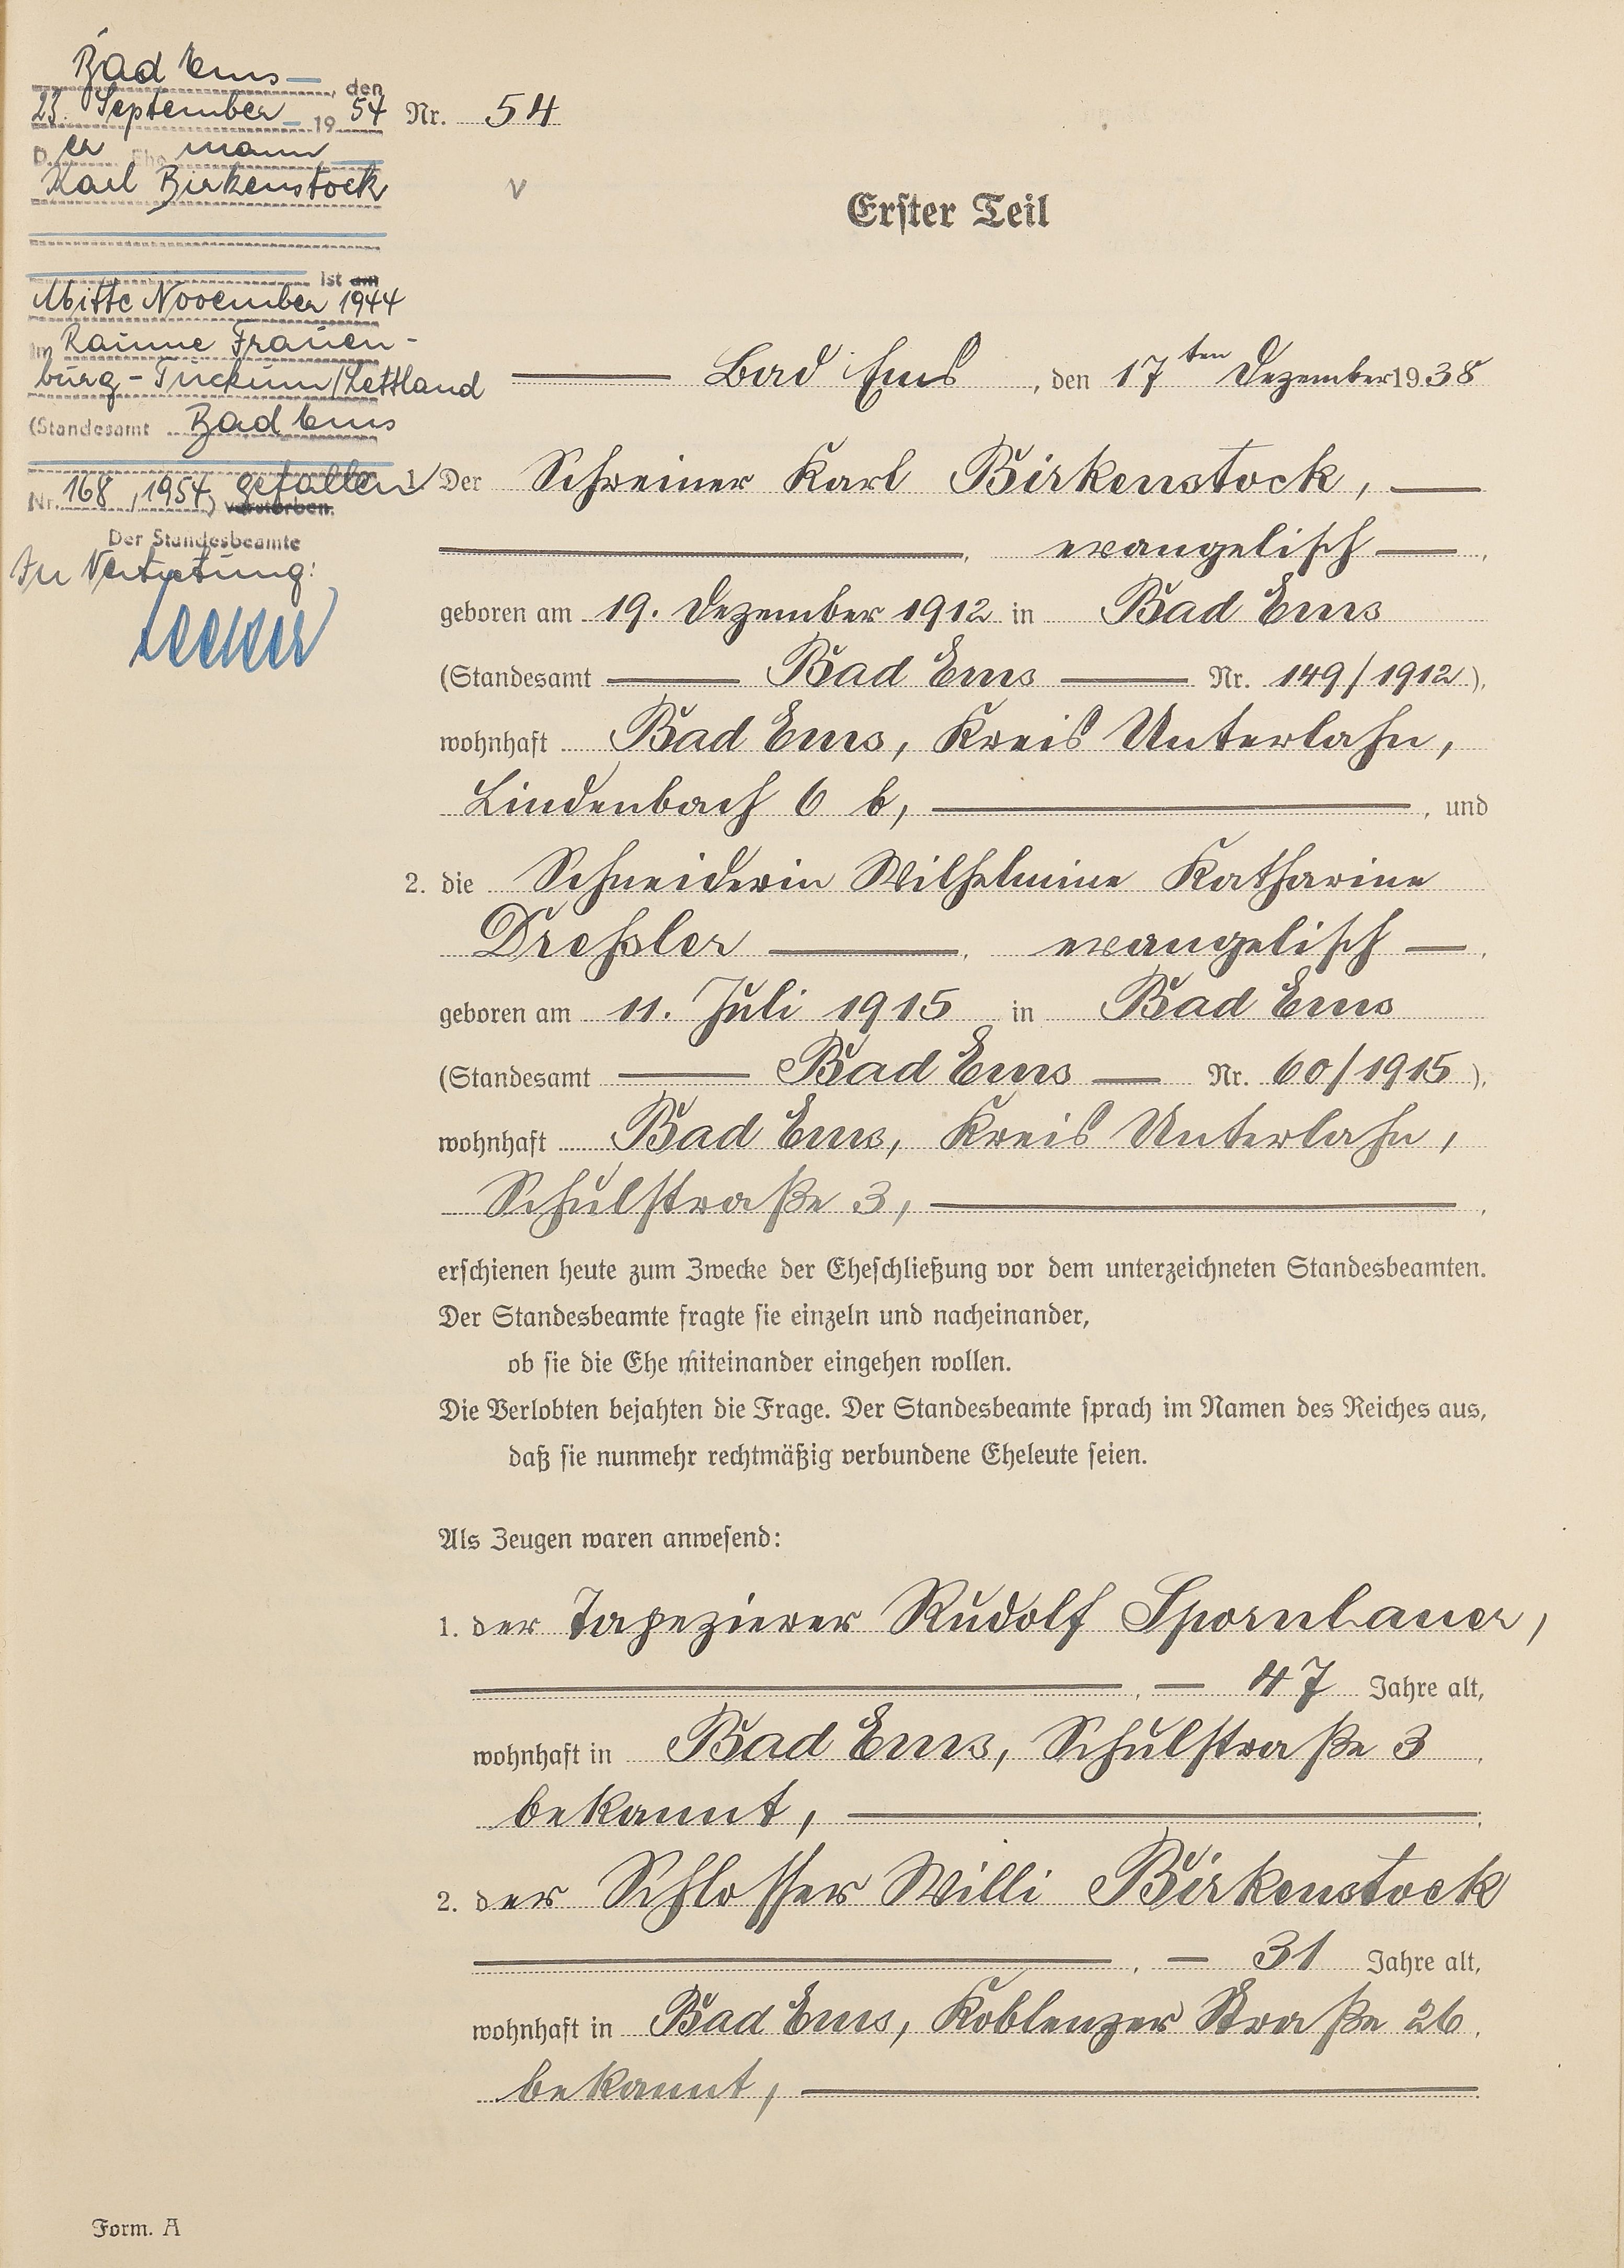 Bad Ems, den
23. September 1954
Der Ehemann
Karl Birkenstock
ist am
Mitte November 1944
im Raume Frauen-
burg-Tuckum/Lettland
(Standesamt Bad Ems
Nr. 168/1954) gefallen verstorben.
Der Standesbeamte
In Vertretung:
Nr. 54
Erster Teil
Bad Ems, den 17ten Dezember 1938
1. Der Schreiner Karl Birkenstock,
, evangelisch,
geboren am 19. Dezember 1912 in Bad Ems
(Standesamt Bad Ems Nr. 149/1912),
wohnhaft Bad Ems, Kreis Unterlahn,
Lindenbach 6 b, , und
2. die Schneiderin Wilhelmine Katharine
Dreßler , evangelisch ,
geboren am 11. Juli 1915 in Bad Ems
(Standesamt Bad Ems Nr. 60/1915),
wohnhaft Bad Ems, Kreis Unterlahn,
Schulstraße 3, ,
erschienen heute zum Zwecke der Eheschließung vor dem unterzeichneten Standesbeamten.
Der Standesbeamte fragte sie einzeln und nacheinander,
ob sie die Ehe miteinander eingehen wollen.
Die Verlobten bejahten die Frage. Der Standesbeamte sprach im Namen des Reiches aus,
daß sie nunmehr rechtmäßig verbundene Eheleute seien.
Als Zeugen waren anwesend:
1. der Tapezierer Rudolf Spornhauer,
, 47 Jahre alt,
wohnhaft in Bad Ems, Schulstraße 3,
bekannt, ;
2. der Schlosser Willi Birkenstock
, 31 Jahre alt,
wohnhaft in Bad Ems, Koblenzer Straße 26,
bekannt, .
Form. A